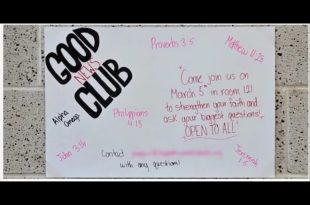 GOOD
NEWS
CLUB
Alpha
Omega
Proverbs 3:5
Matthew 11:28
"Come join us on
March 5th in room 121
to strengthen your faith and
ask your biggest questions!
OPEN TO ALL"
Philippians
4:13
John 3:16
Jeremiah
1:5
Contact
with any questions!